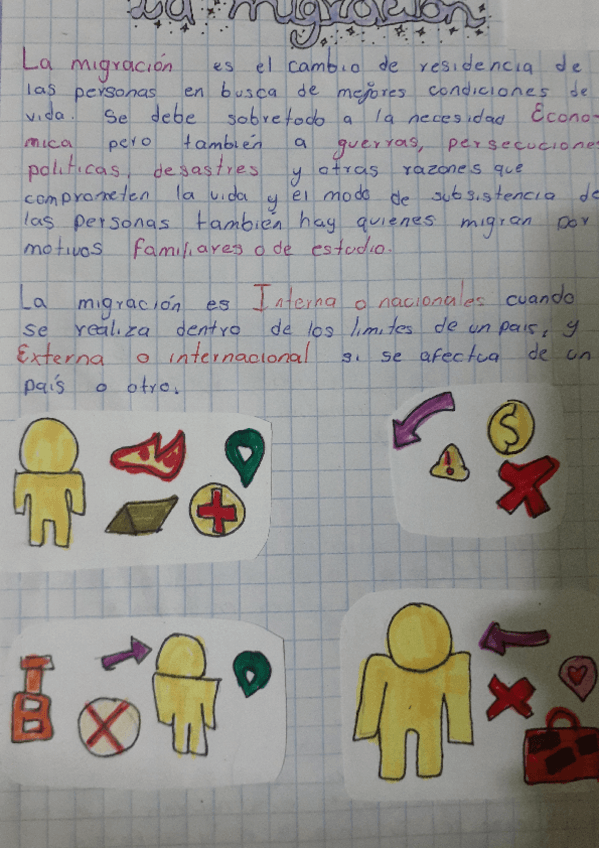 La migración
La migración es el cambio de residencia de
las personas en busca de mejores condiciones de
vida. Se debe sobretodo a la necesidad Econo-
mica pero también a guerras, persecuciones
politicas, desastres y otras razones que
comprometen la vida y el modo de subsistencia de
las personas también hay quienes migran por
motivos familiares o de estudio.
La migración es Interna o nacionales cuando
se realiza dentro de los limites de un pais, y
Externa o internacional si se afectua de un
país o otro.
$